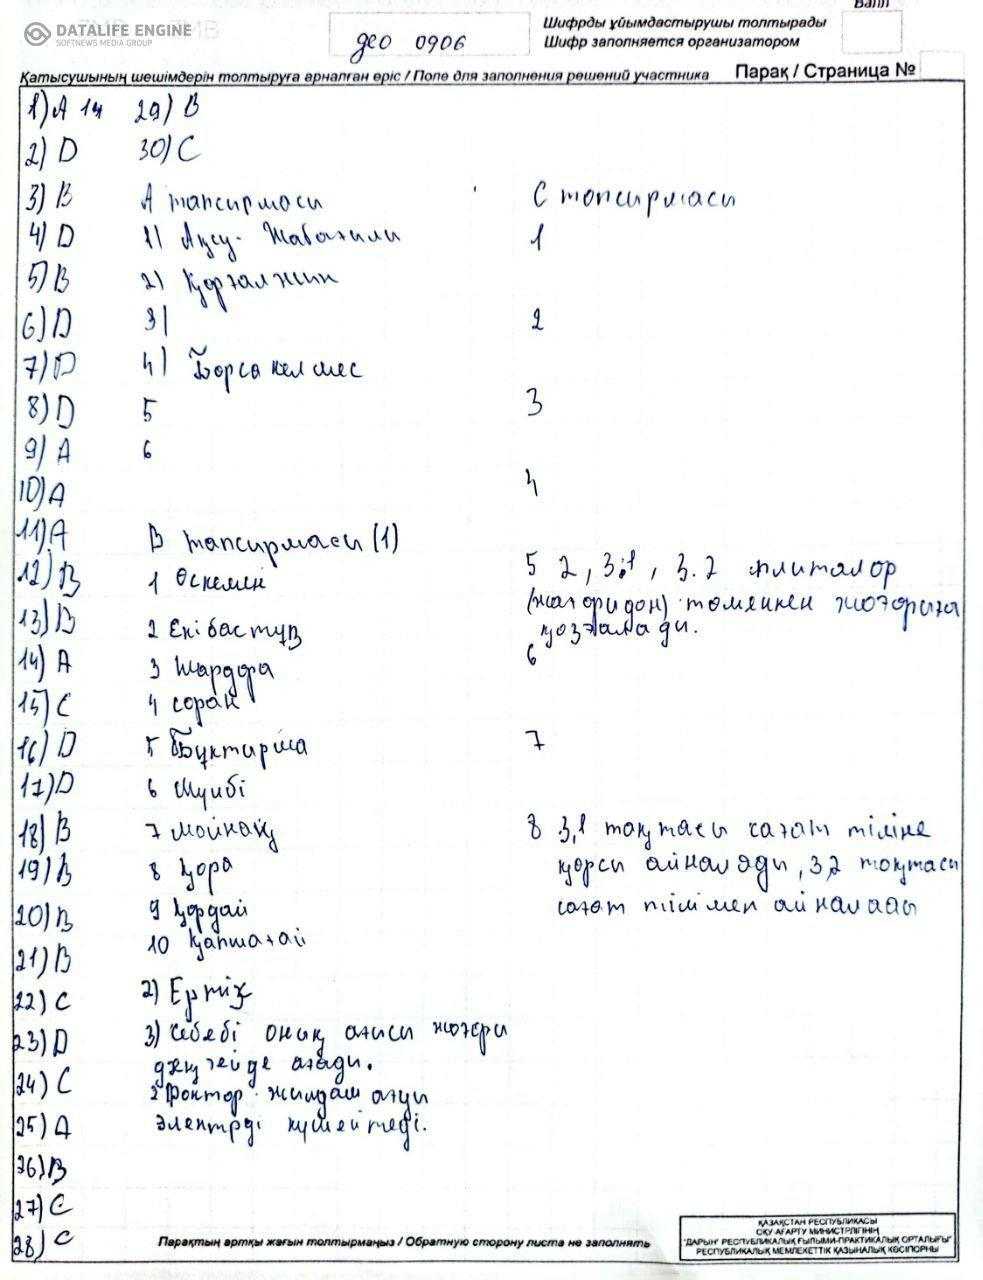 Балл
DATALIFE ENGINE
SOFTNEWS MEDIA GROUP
гео 0906
Шифрды ұйымдастырушы толтырады
Шифр заполняется организатором
Қатысушының шешімдерін толтыруға арналған өріс / Поле для заполнения решений участника
Парақ / Страница №
1) A 14
2) D
3) B
4) D
5) B
6) D
7) D
8) D
9) A
10) A
11) A
12) B
13) B
14) A
15) C
16) D
17) D
18) B
19) B
20) B
21) B
22) C
23) D
24) C
25) A
26) B
27) C
28) C
29) B
30) C
А тапсырмасы
1) Ақсу-Жабағылы
2) Қорғалжин
3)
4) Борсакелмес
5
6
В тапсырмасы (1)
1 Өскемен
2 Екібастұз
3 Шардара
4 соран
5 Бұқтырма
6 Шүлбі
7 Мойнақ
8 Қора
9 Қордай
10 Қапшағай
2) Ертіс
3) Себебі оның ағысы жоғары
деңгейде ағады.
2 Фактор жылдам ағуы
электрді күшейтеді.
С тапсырмасы
1
2
3
4
5 2, 3.1, 3.2 плиталар
(жағоридан) төменнен жоғарыға
қозғалады.
6
7
8 3,1 тоқтасы сағат тіліне
қарсы айналады, 3,2 тоқтасы
сағат тілімен айналады
Парақтың артқы жағын толтырмаңыз / Обратную сторону листа не заполнять
ҚАЗАҚСТАН РЕСПУБЛИКАСЫ
ОҚУ-АҒАРТУ МИНИСТРЛІГІНІҢ
"ДАРЫН" РЕСПУБЛИКАЛЫҚ ҒЫЛЫМИ-ПРАКТИКАЛЫҚ ОРТАЛЫҒЫ"
РЕСПУБЛИКАЛЫҚ МЕМЛЕКЕТТІК ҚАЗЫНАЛЫҚ КӘСІПОРНЫ